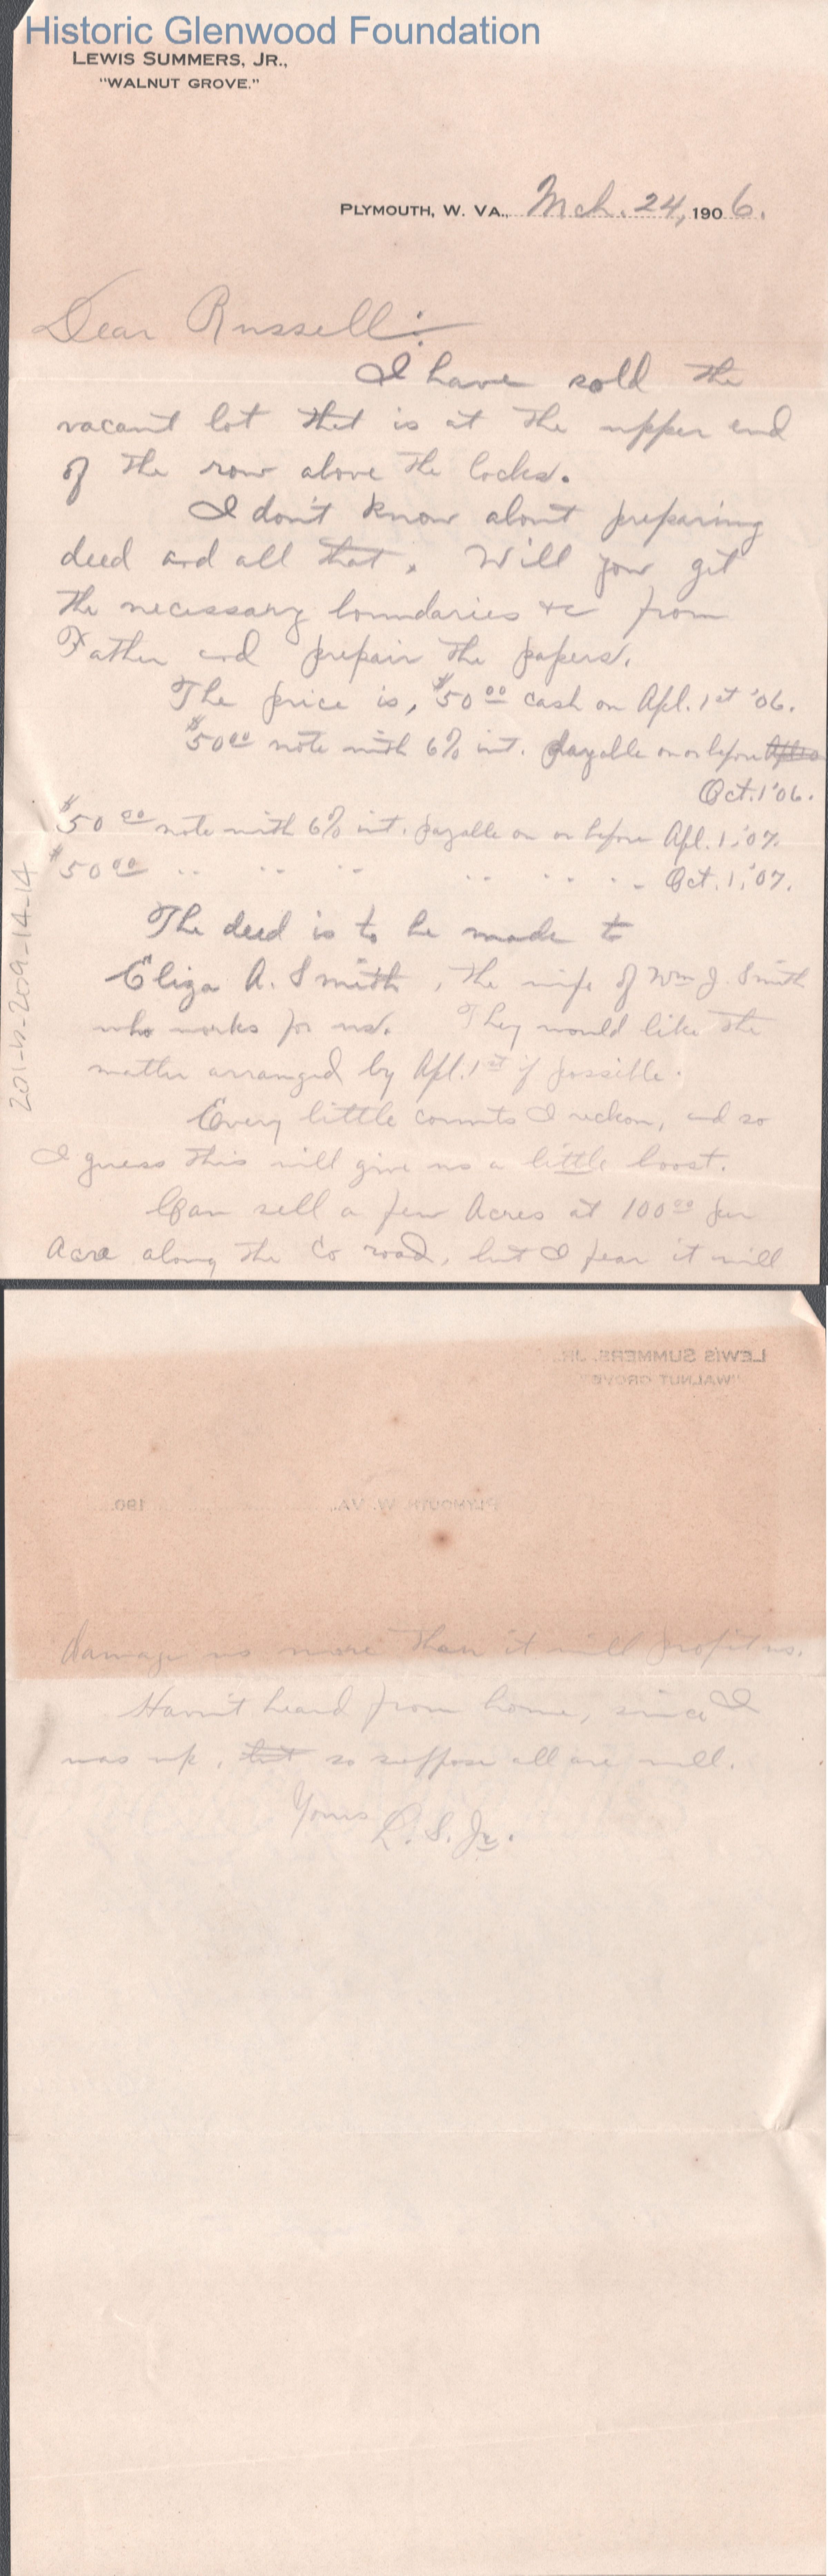 Historic Glenwood Foundation
LEWIS SUMMERS, JR.,
"WALNUT GROVE."
PLYMOUTH, W. VA., Mch. 24, 1906.
Dear Russell:
I have sold the
vacant lot that is at the upper end
of the row above the locks.
I don't know about preparing
deed and all that. Will you get
the necessary boundaries &c from
Father and prepair the papers.
The price is, $50.00 cash on Apl. 1st '06.
$50.00 note with 6% int. payable on or before
Oct. 1 '06.
$50.00 note with 6% int. payable on or before Apl. 1, '07.
$50.00 " " " " " " " Oct. 1, '07.
The deed is to be made to
Eliza A. Smith, the wife of Wm J. Smith
who works for us. They would like the
matter arranged by Apl. 1st if possible.
Every little counts I reckon, and so
I guess this will give us a little boost.
Can sell a few Acres at 100.00 per
Acre along the Co road, but I fear it will
201-b-209-14-14
LEWIS SUMMERS, JR.,
"WALNUT GROVE"
PLYMOUTH, W. VA., 190
damage us more than it will profit us.
Havn't heard from home, since I
was up, but so suppose all are well.
Yours
L. S. Jr.